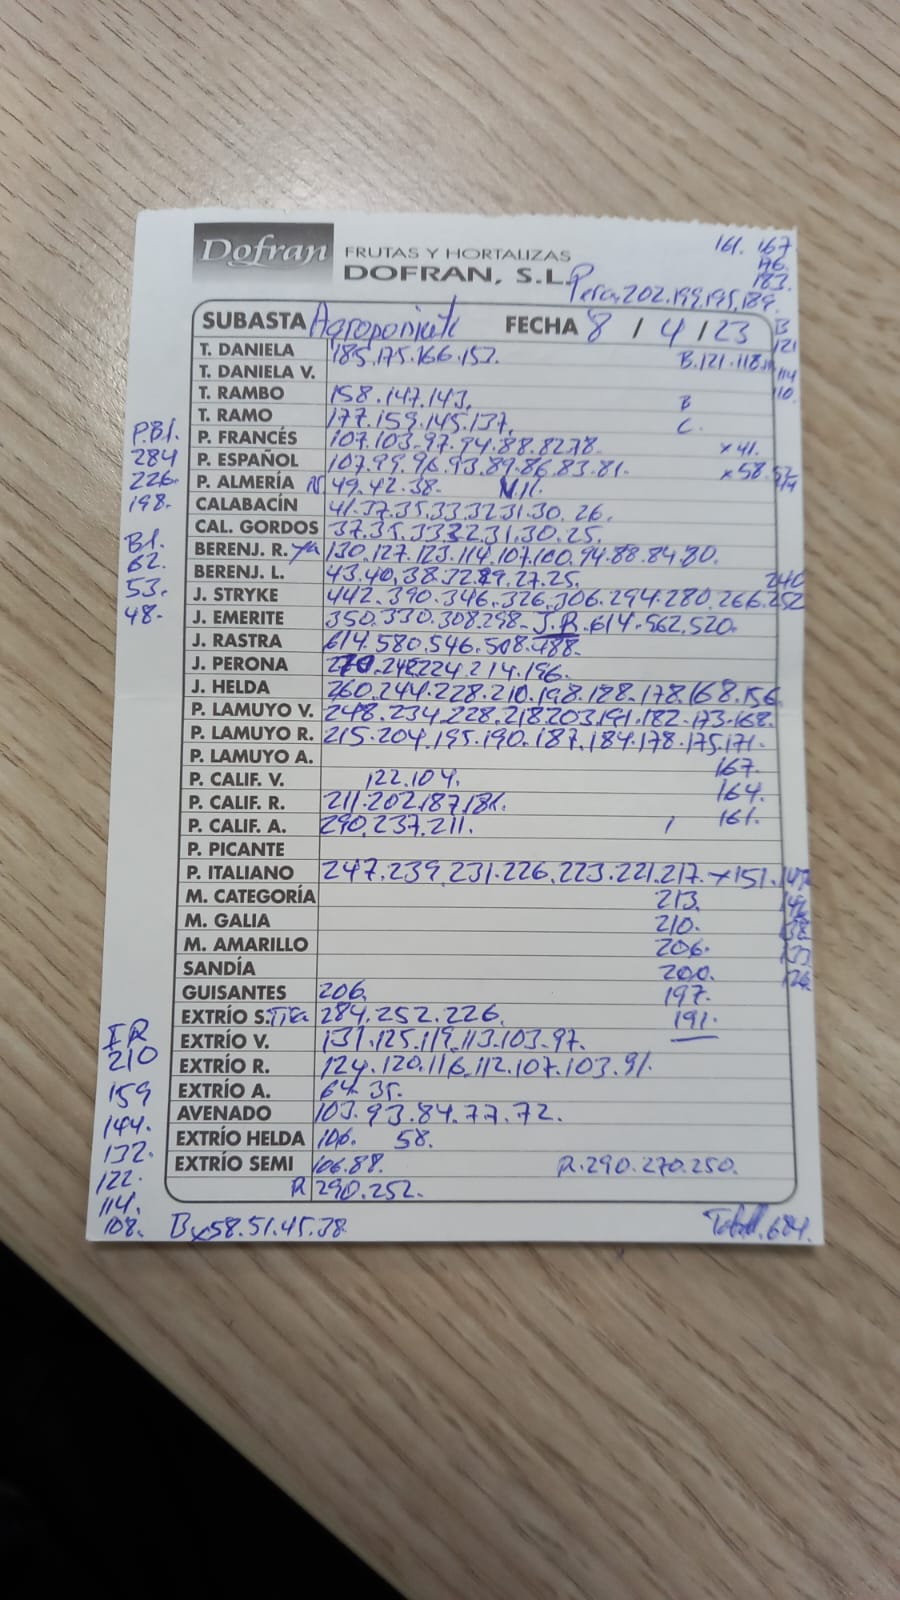 Dofran FRUTAS Y HORTALIZAS
DOFRAN, S.L.
161. 167
176.
183.
Pera, 202.199,195,189.
SUBASTA Agroponiente FECHA 8 / 4 / 23
B
121
114
110.
T. DANIELA 185.175.166.157. B.121.118.
T. DANIELA V.
T. RAMBO 158.147.143. B
T. RAMO 177.159.145.137. C.
P. FRANCÉS 107.103.97.94.88.82.78. x41.
P. ESPAÑOL 107.99.96.93.89.86.83.81. x58.57
P. ALMERÍA N. 49.42.38. N.11.
CALABACÍN 41.37.35.33.32.31.30.26.
CAL. GORDOS 37.35.33.32.31.30.25.
BERENJ. R. 130.127.123.114.107.100.94.88.84.80.
BERENJ. L. 43.40.38.32.29.27.25.
240
J. STRYKE 442.390.346.326.306.294.280.266.252
J. EMERITE 350.330.308.298. J.R.614.562.520.
J. RASTRA 614.580.546.508.488.
J. PERONA 270.242.224.214.196.
J. HELDA 260.244.228.210.198.188.178.168.156
P. LAMUYO V. 248.234.228.218.203.191.182.173.168.
P. LAMUYO R. 215.204.195.190.187.184.178.175.171.
P. LAMUYO A. 167.
P. CALIF. V. 122.104. 164.
P. CALIF. R. 211.202.187.181. 161.
P. CALIF. A. 290.237.211.
P. PICANTE
P. ITALIANO 247.239.231.226.223.221.217. x151.147
M. CATEGORÍA 213. 142
M. GALIA 210. 138
M. AMARILLO 206. 133
SANDÍA 200. 126
GUISANTES 206. 197.
EXTRÍO S. 284.252.226. 191.
EXTRÍO V. 131.125.119.113.103.97.
EXTRÍO R. 124.120.116.112.107.103.91.
EXTRÍO A. 64.35.
AVENADO 103.93.84.77.72.
EXTRÍO HELDA 106. 58.
EXTRÍO SEMI 106.88. R.290.270.250.
R 290.252.
Bx58.51.45.38
684.
P.Bl.
284
226.
198.
Bl.
62.
53.
48.
IR
210
159
144.
132.
122.
114.
108.